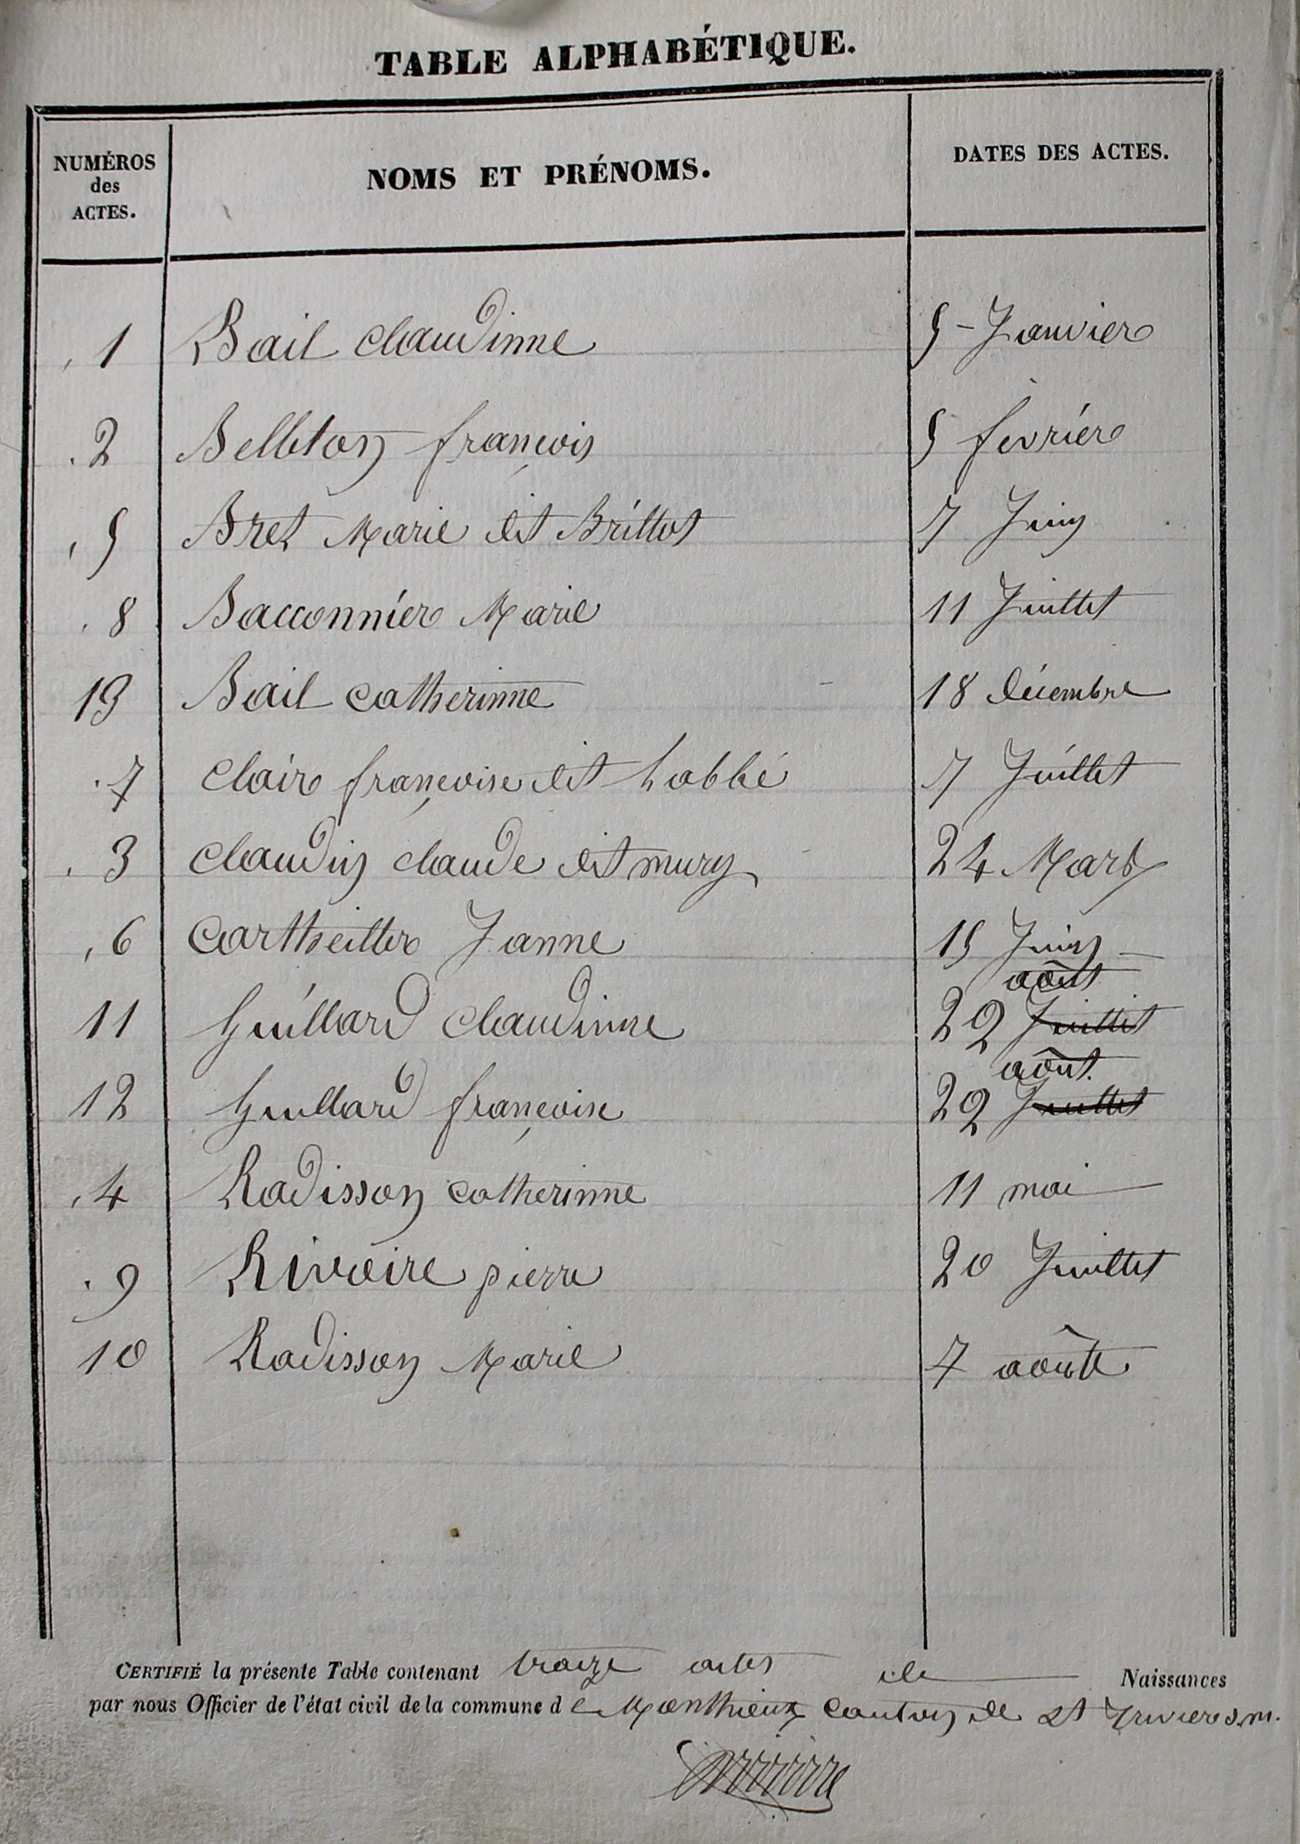 TABLE ALPHABÉTIQUE.
NUMÉROS des ACTES. NOMS ET PRÉNOMS. DATES DES ACTES.
1 Bail Claudinne 5 Janvier
2 Belleton françois 5 fevrier
5 Bret Marie dit Brittot 7 Juin
8 Bacconnier Marie 11 Juillet
13 Bail Catherinne 18 décembre
7 Clair françoise dit Labbé 7 Juillet
3 Claudin Claude dit mury 24 Mars
6 Cartheiller Janne 15 Juin
août
11 Guillard Claudinne 22 Juillet
août
12 Guillard françoise 22 Juillet
4 Radisson Catherinne 11 mai
9 Rivoire pierre 20 Juillet
10 Radisson Marie 7 août
CERTIFIÉ la présente Table contenant traize actes de Naissances
par nous Officier de l'état civil de la commune de Monthieux Canton de St Trivier s. m.